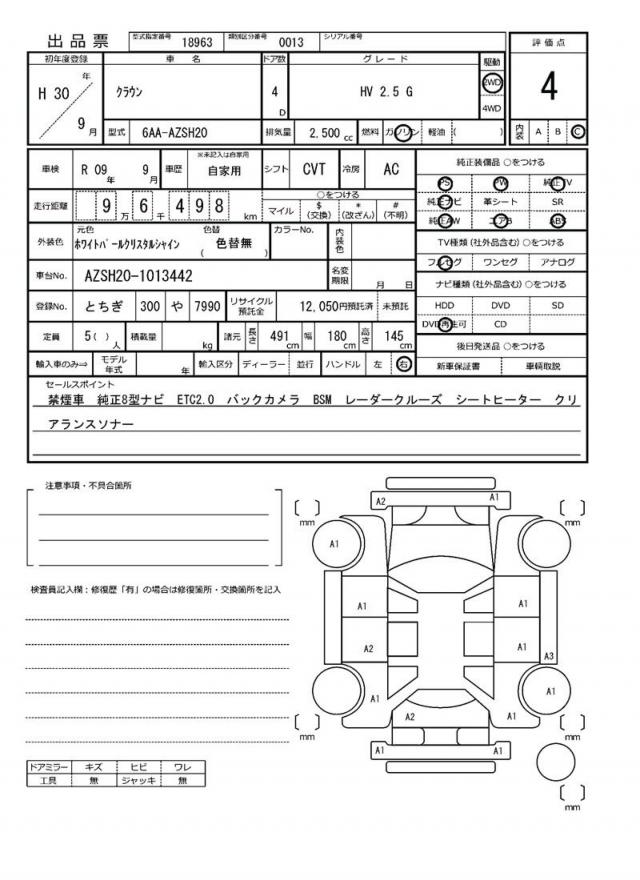 出品票 型式指定番号 18963 類別区分番号 0013 シリアル番号
評価点
4
内装 A B C
初年度登録 車名 ドア数 グレード 駆動
H 30 年 9 月
クラウン
4 D
HV 2.5 G
2WD
4WD
型式 6AA-AZSH20 排気量 2,500 cc 燃料 ガソリン 軽油 ( )
車検 R 09 年 9 月 車歴 ※未記入は自家用 自家用 シフト CVT 冷房 AC
走行距離 9 万 6 千 4 9 8 km
○をつける
マイル $(交換) *(改ざん) #(不明)
外装色 元色 ホワイトパールクリスタルシャイン 色替 ( 色替無 ) カラーNo. 内装色
車台No. AZSH20-1013442 名変期限 月 日
登録No. とちぎ 300 や 7990 リサイクル預託金 12,050円預託済 未預託
定員 5( ) 人 積載量 kg 諸元 長さ 491 cm 幅 180 cm 高さ 145 cm
輸入車のみ⇒ モデル年式 年 輸入区分 ディーラー 並行 ハンドル 左 右
純正装備品 ○をつける
PS PW 純正TV
純正ナビ 革シート SR
純正AW エアB ABS
TV種類(社外品含む) ○をつける
フルセグ ワンセグ アナログ
ナビ種類(社外品含む) ○をつける
HDD DVD SD
DVD再生可 CD
後日発送品 ○をつける
新車保証書 車輌取説
セールスポイント
禁煙車 純正8型ナビ ETC2.0 バックカメラ BSM レーダークルーズ シートヒーター クリ
アランスソナー
注意事項・不具合箇所
検査員記入欄:修復歴「有」の場合は修復箇所・交換箇所を記入
ドアミラー キズ ヒビ ワレ
工具 無 ジャッキ 無
A2 A1
mm mm
A1
A1 A1
A2 A1 A3
A1 A1
A2 A1
mm mm
A1 A1
mm